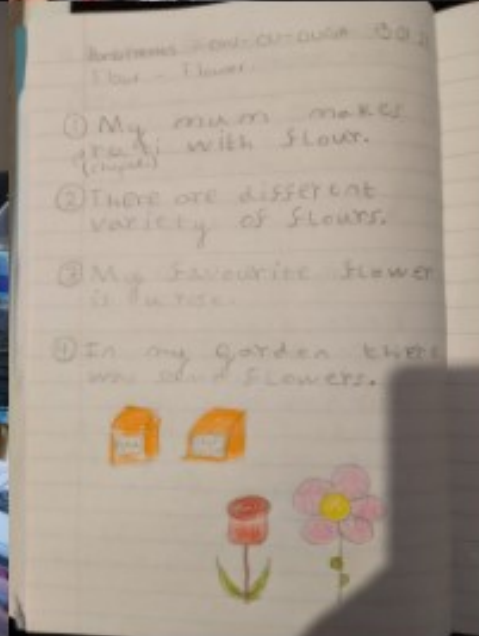 Flour - Flower.
① My mum makes
roti with flour.
(chapati)
② There are different
variety of flours.
③ My favourite flower
is a rose.
④ In my garden there
are flowers.